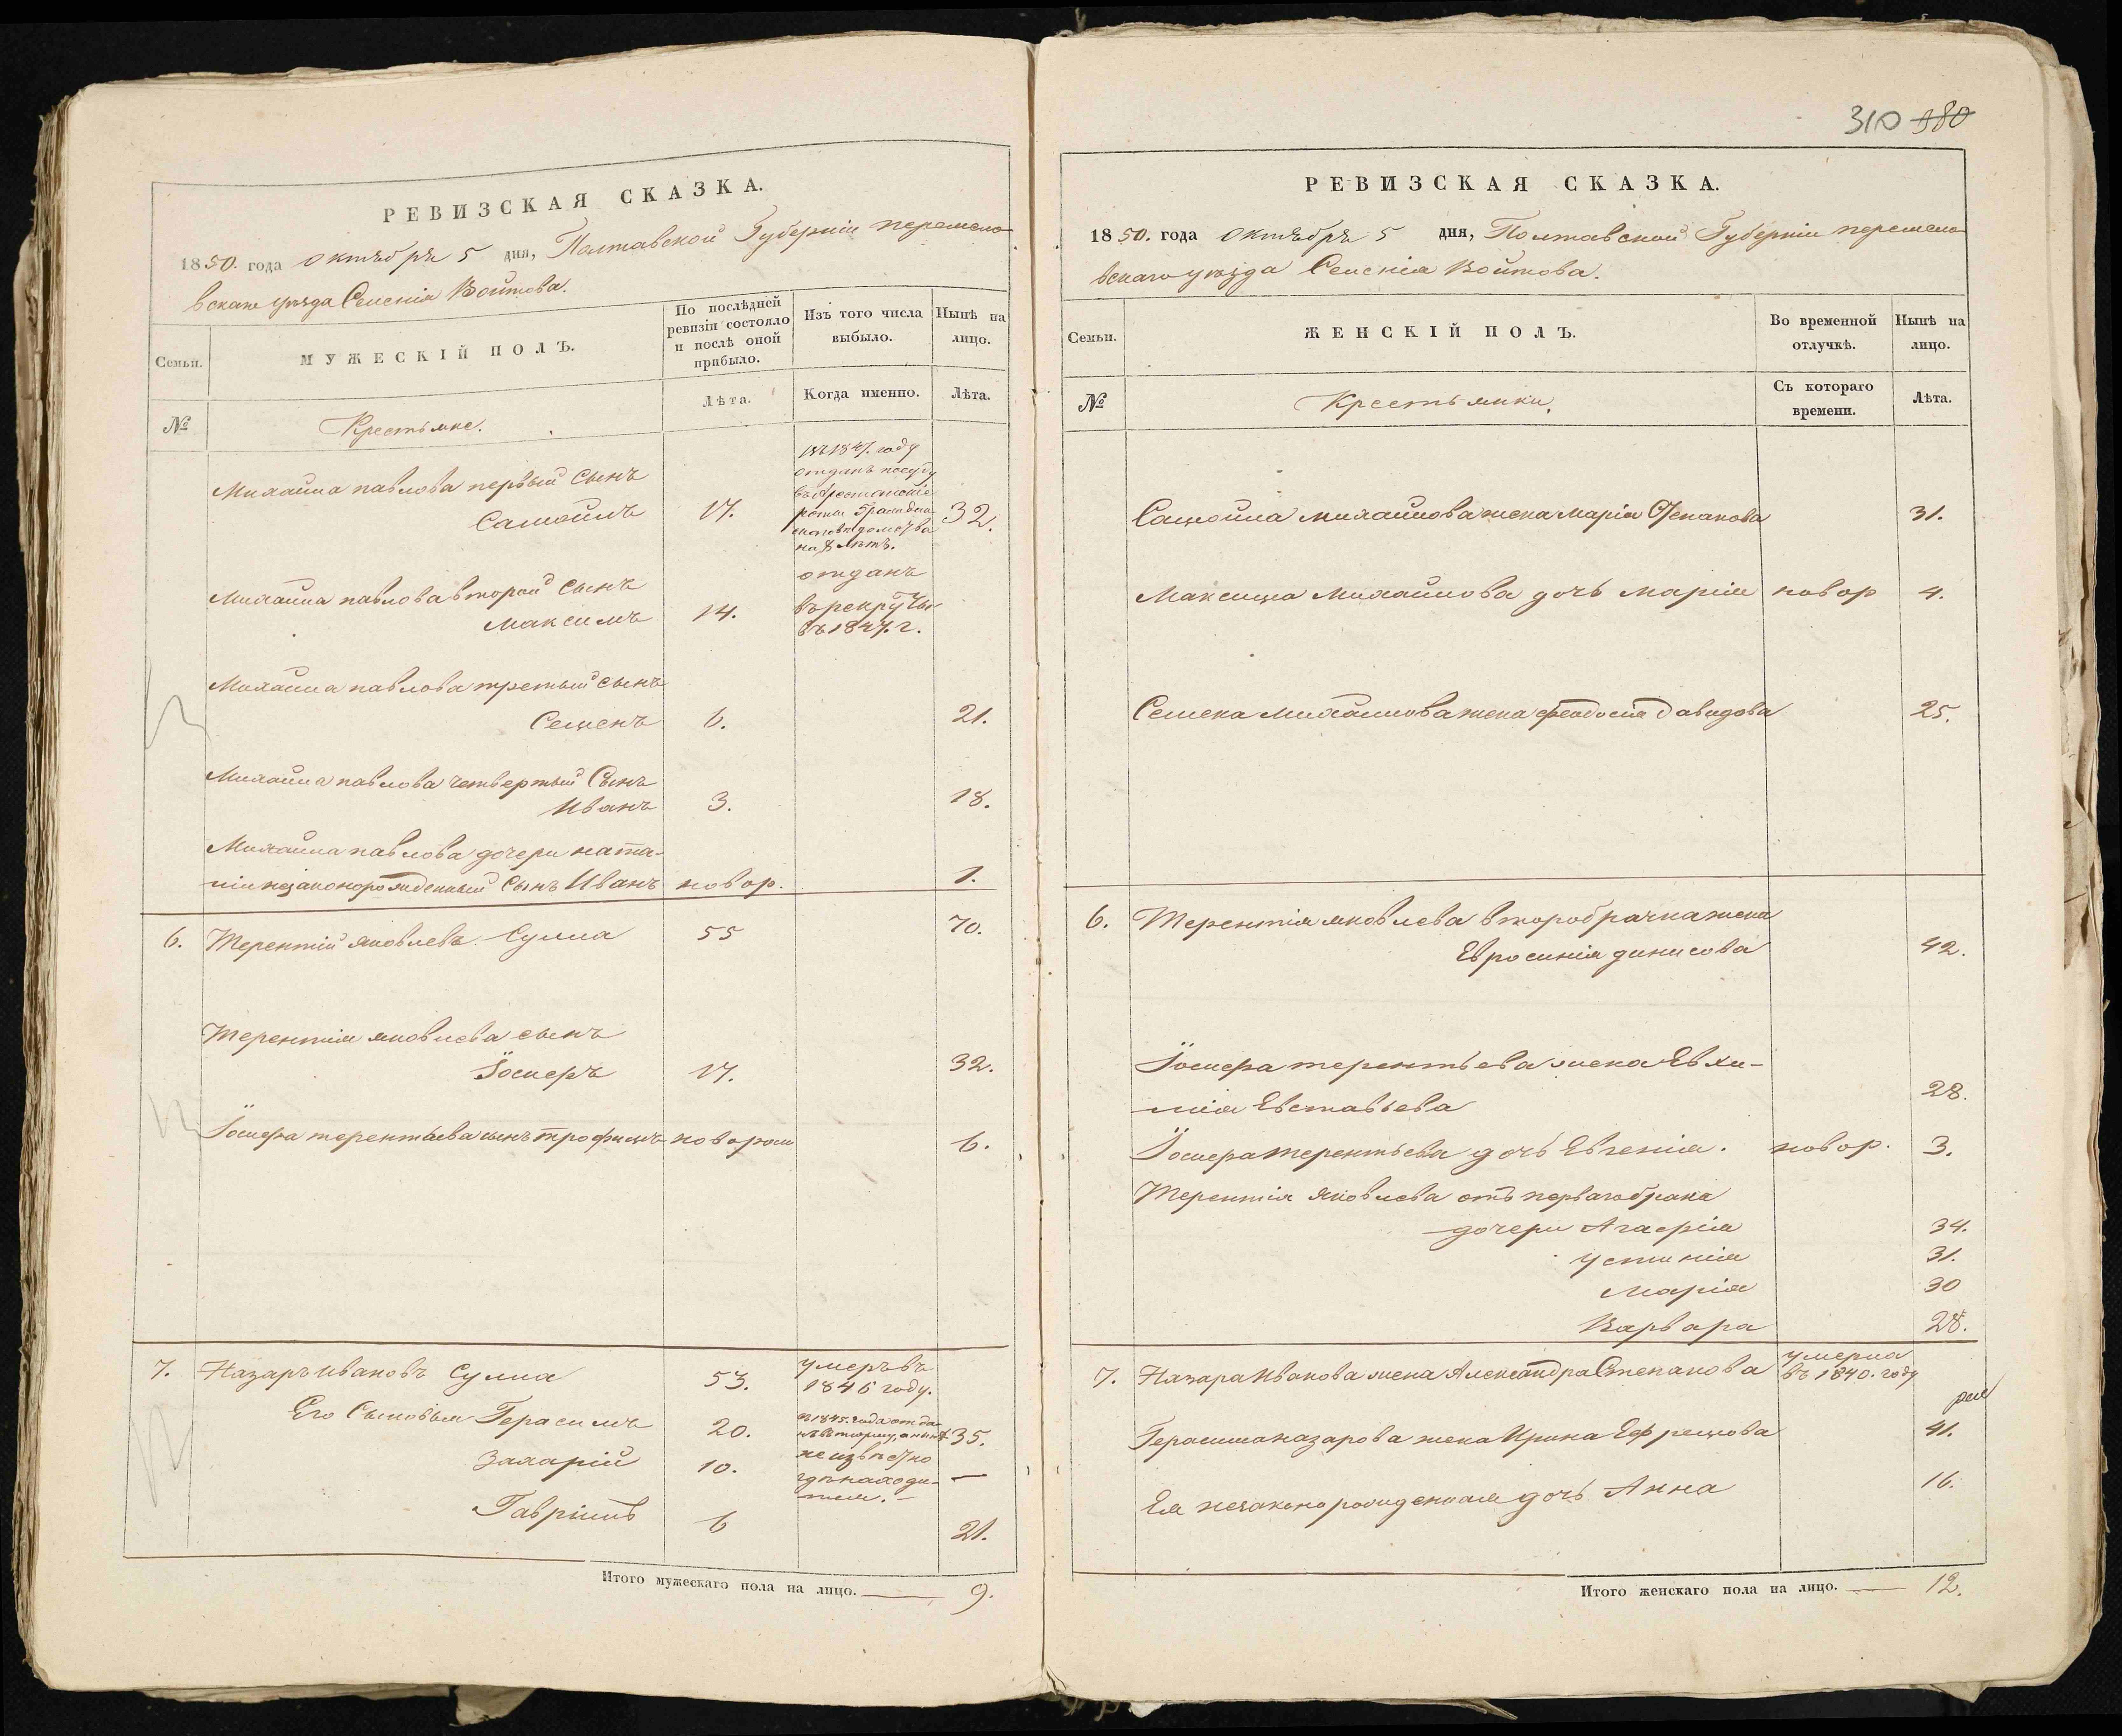 РЕВИЗСКАЯ СКАЗКА.
1850. года октября 5 дня, Полтавской Губерніи переясла-
вскаго уѣзда Селенія Войтова.
Семьи.
МУЖЕСКІЙ ПОЛЪ.
По послѣдней ревизіи состояло и послѣ оной прибыло.
Изъ того числа выбыло.
Нынѣ на лицо.
№
Крестьяне.
Лѣта.
Когда именно.
Лѣта.
Михаила павлова первый сынъ
Самойлъ 17. 32.
въ 1847. году
отданъ по суду
въ Арестанскіе
роты Граждан
скаго вѣдомства
на лѣтъ.
Михаила павлова второй сынъ
Максимъ 14.
отданъ
въ рекруты
въ 1847. г.
Михаила павлова третьий сынъ
Семенъ 6. 21.
Михаила павлова четвертый Сынъ
Иванъ 3. 18.
Михаила павлова дочери ната-
ліи незаконорожденный Сынъ Иванъ новор. 1.
6. Терентій яковлевъ Сулиа 55 70.
Терентія яковлева сынъ
Іосиеръ 17. 32.
Іосиера терентьева сынъ трофимъ новорож 6.
7. Назаръ ивановъ Сулиа 53. умеръ въ
1846 году.
Его Сыновья Герасимъ 20. 35.
въ 1845. года отда
нъ въ тюрму, а нынѣ
неизвѣстно
гдѣ находи-
тся. —
Захарій 10. —
Гавріилъ 6 21.
Итого мужескаго пола на лицо. — 9.
310 380
РЕВИЗСКАЯ СКАЗКА.
1850. года октября 5 дня, Полтавской Губерніи переясла-
вскаго уѣзда Селенія Войтова.
Семьи.
ЖЕНСКІЙ ПОЛЪ.
Во временной отлучкѣ.
Нынѣ на лицо.
№
Крестьянки.
Съ котораго времени.
Лѣта.
Самойла михаилова жена марія Степанова 31.
Максима Михаилова дочь марія новор 4.
Семена Михаилова жена феодосія давидова 25.
6. Терентія яковлева второбрачна жена
Евросинія динисова 42.
Іосиера терентьева жена Евхи-
мія Евставьева 28.
Іосиера терентьева дочь Евгенія. новор. 3.
Терентія яковлева отъ перваго брака
дочери Агафія 34.
устинія 31.
марія 30
Варвара 28.
7. Назара Иванова жена Александра Степанова умерла
въ 1840. году
Герасима назарова жена Ирина Ефремова 41.
Ея незаконорожденная дочь Анна 16.
Итого женскаго пола на лицо. — 12.